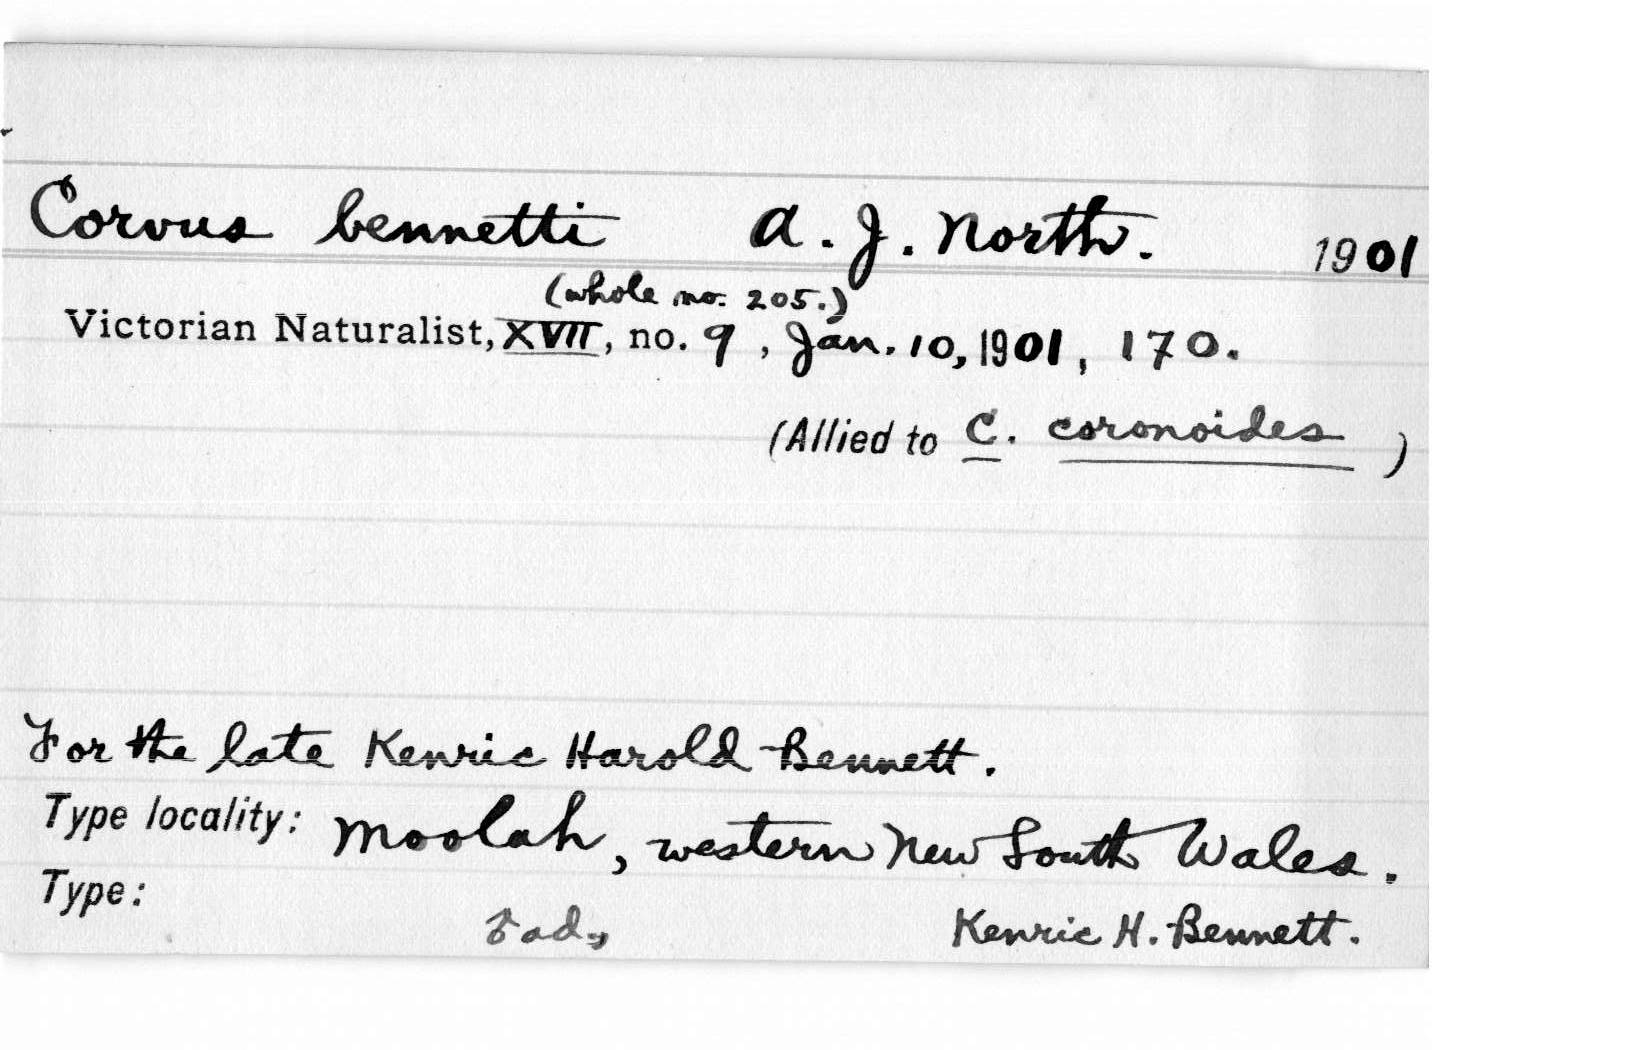 Corvus bennetti A. J. North. 1901
(whole no. 205.)
Victorian Naturalist, XVII, no. 9, Jan. 10, 1901, 170.
(Allied to C. coronoides )
For the late Kenric Harold Bennett.
Type locality: Moolah, western New South Wales.
Type:
♂ ad., Kenric H. Bennett.